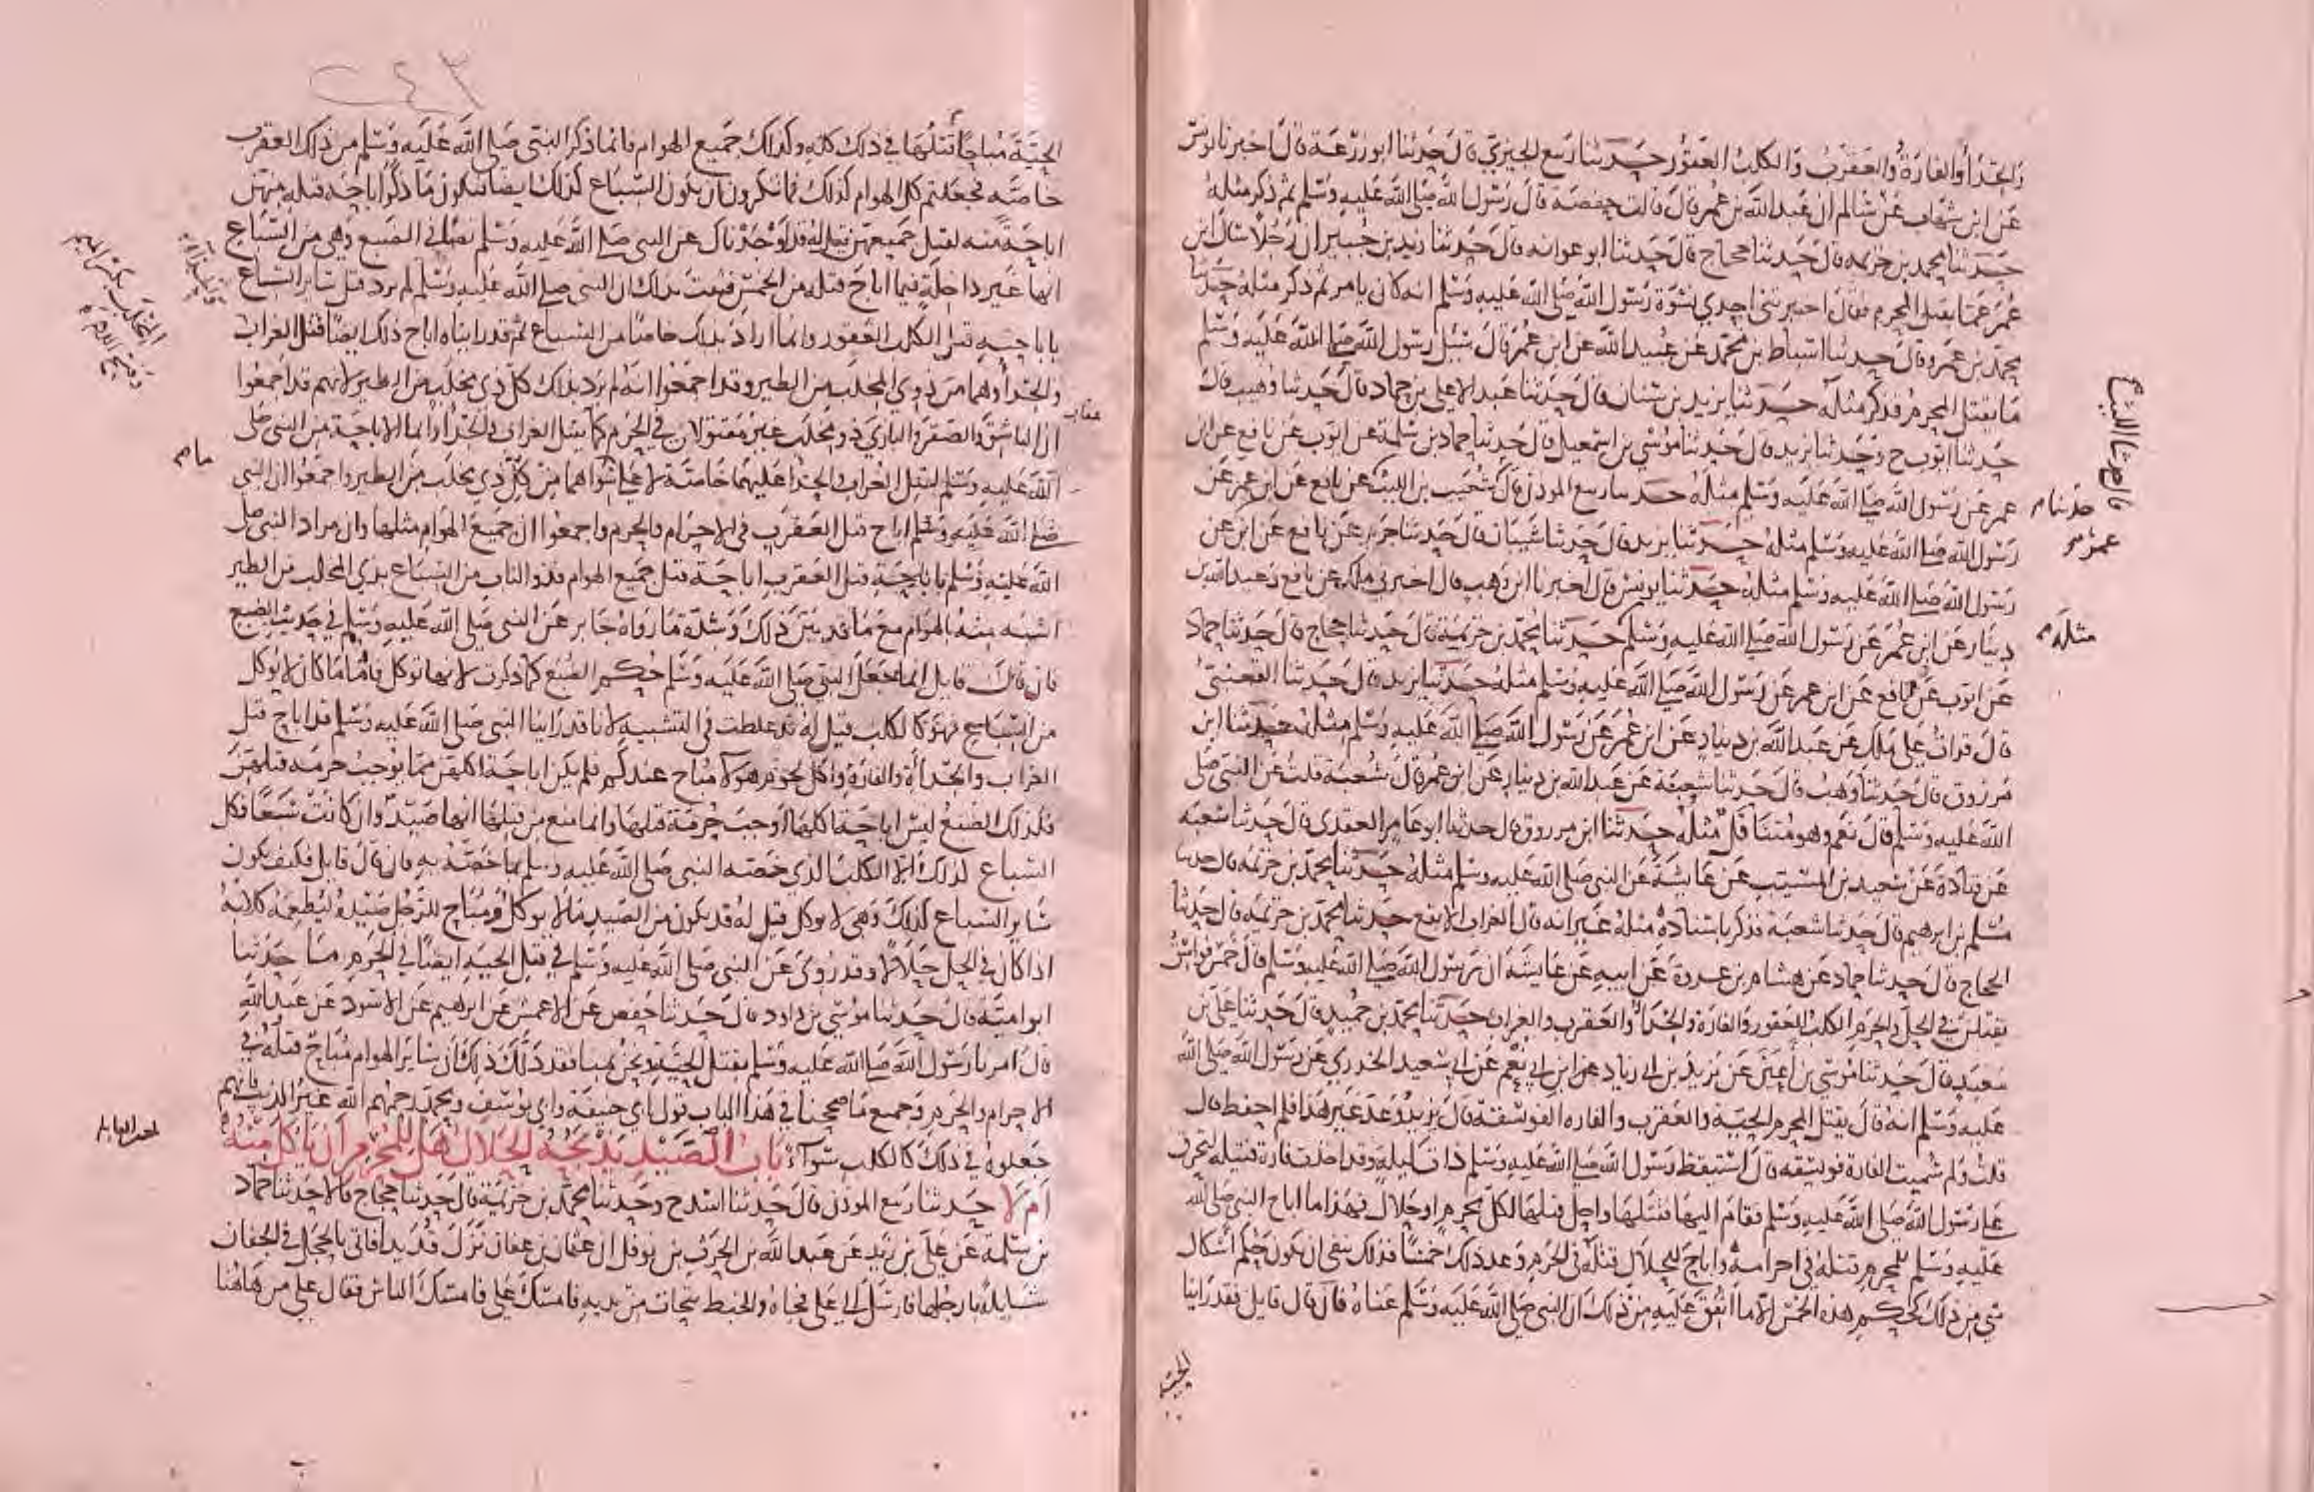 والحدأ والفارة والعقرب والكلب العقور حدثنا ربيع الجيزي قال حدثنا ابو زرعة قال اخبرنا يونس
عن ابن شهاب عن سالم ان عبد الله بن عمر قال قالت حفصة قال رسول الله صلى الله عليه وسلم ثم ذكر مثله
حدثنا محمد بن خزيمة قال حدثنا حجاج قال حدثنا ابو عوانه قال حدثنا زيد بن جبير ان رجلا سال ابن
عمر عما يقتل المحرم فقال اخبرتني احدي نسوة رسول الله صلى الله عليه وسلم انه كان يامر ثم ذكر مثله حدثنا
محمد بن عمرو قال حدثنا اسباط بن محمد عن عبيد الله عن ابن عمر قال سئل رسول الله صلى الله عليه وسلم
ما يقتل المحرم فذكر مثله حدثنا يزيد بن سنان قال حدثنا عبد الاعلى بن حماد قال حدثنا وهيب قال
حدثنا ايوب ح وحدثنا يزيد قال حدثنا موسي بن اسمعيل قال حدثنا حماد بن سلمة عن ايوب عن نافع عن ابن
عمر عن رسول الله صلى الله عليه وسلم مثله حدثنا ربيع الموذن قال شعيب بن الليث عن نافع عن ابن عمر عن
رسول الله صلى الله عليه وسلم مثله حدثنا يزيد قال حدثنا شيبان قال حدثنا جرير عن نافع عن ابن عن
رسول الله صلى الله عليه وسلم مثله حدثنا يونس قال اخبرنا ابن وهب قال اخبرني ملك عن نافع وعبد الله بن
دينار عن ابن عمر عن رسول الله صلى الله عليه وسلم حدثنا محمد بن خزيمة قال حدثنا حجاج قال حدثنا حماد
عن ايوب عن نافع عن ابن عمر عن رسول الله صلى الله عليه وسلم مثله حدثنا يزيد قال حدثنا القعنبي
قال قرات على ملك عن عبد الله بن دينار عن ابن عمر عن رسول الله صلى الله عليه وسلم مثله حدثنا ابن
مرزوق قال حدثنا وهب قال حدثنا شعبة عن عبد الله بن دينار عن ابن عمر قال شعبة قلت عن النبي صلى
الله عليه وسلم قال نعم وهو مثله حدثنا ابن مرزوق قال حدثنا ابو عامر العقدي قال حدثنا شعبة
عن قتادة عن سعيد بن المسيب عن عايشة عن النبي صلى الله عليه وسلم مثله حدثنا محمد بن خزيمة قال حدثنا
مسلم بن ابرهيم قال حدثنا شعبة فذكر باسناده مثله غير انه قال الغراب الابقع حدثنا محمد بن خزيمة قال حدثنا
الحجاج قال حدثنا حماد عن هشام بن عروة عن ابيه عن عايشة ان رسول الله صلى الله عليه وسلم قال خمس فواسق
يقتلن في الحل والحرم الكلب العقور والفارة والحدأ والعقرب والغراب حدثنا محمد بن حميد قال حدثنا علي بن
معبد قال حدثنا موسي بن اعين عن يزيد بن ابي زياد عن ابن ابي نعم عن ابي سعيد الخدري عن رسول الله صلى الله
عليه وسلم انه قال يقتل المحرم الحية والعقرب والفارة الفويسقة قال يزيد وعد غير هذا فلم احفظ قال
قلت ولم سميت الفارة فويسقه قال استيقظ رسول الله صلى الله عليه وسلم ذات ليلة وقد اخذت فارة فتيلة لتحرق
على رسول الله صلى الله عليه وسلم فقام اليها فقتلها واحل قتلها لكل محرم او حلال فهذا ما اباح النبي صلى الله
عليه وسلم للمحرم قتله في احرامه واباح للحلال قتله في الحرم وعد ذلك خمسا فذلك ينفي ان يكون حكم اشكال
شي من ذلك كحكم هذه الخمس الا ما اتفق عليه من ذلك ان النبي صلى الله عليه وسلم عناه فان قال قايل فقد راينا
الحية
قال حدثنا الليث
حدثنا
عمر
مثله
الحية مباحا قتلها في ذلك كله وكذلك جميع الهوام فانما ذكر النبي صلى الله عليه وسلم من ذلك العقرب
خاصة فجعلتم كل الهوام كذلك فما تنكرون ان يكون السباع كذلك ايضا فيكون ما ذكر اباحة قتله منهن
اباحة منه لقتل جميعهن قيل له قد اوجدناك عن النبي صلى الله عليه وسلم نصا في الضبع وهي من السباع
انها غير داخلة فيما اباح قتله من الخمس فثبت بذلك ان النبي صلى الله عليه وسلم لم يرد قتل ساير السباع
باباحته قتل الكلب العقور وانما اراد بذلك خاصا من السباع ثم قد راينا اباح ذلك ايضا قتل الغراب
والحدأ وهما من ذوي المخلب من الطير وقد اجمعوا انه لم يرد بذلك كل ذي مخلب من الطير لانهم قد اجمعوا
ان الباشق والصقر والبازي ذو مخلب غير مقتولان في الحرم كما يقتل الغراب والحدأ وانما الاباحة من النبي صلى
الله عليه وسلم لقتل الغراب والحدأ عليهما خاصة لا على سواهما من كل ذي مخلب من الطير واجمعوا ان النبي
صلى الله عليه وسلم اباح قتل العقرب في الاحرام والحرم واجمعوا ان جميع الهوام مثلها وان مراد النبي صلى
الله عليه وسلم باباحة قتل العقرب اباحة قتل جميع الهوام فذو الناب من السباع بذي المخلب من الطير
اشبه منه بالهوام مع ما قد بين ذلك وشده ما رواه جابر عن النبي صلى الله عليه وسلم في حديث الضبع
فان قال قايل انما جعل النبي صلى الله عليه وسلم حكم الضبع كما ذكرت لانها توكل فاما ما كان لا يوكل
من السباع فهو كالكلب قيل له قد غلطت في التشبيه لانا قد راينا النبي صلى الله عليه وسلم قد اباح قتل
الغراب والحدأة والفارة واكل لحوم هولا مباح عندكم فلم يكن اباحة اكلهن مما يوجب حرمة قتلهن
فكذلك الضبع ليس اباحة اكلها اوجب حرمة قتلها وانما منع من قتلها انها صيد وان كانت سبعا فكل
السباع كذلك الا الكلب الذي خصه النبي صلى الله عليه وسلم بما خصه به فان قال قايل فكيف يكون
ساير السباع كذلك وهي لا يوكل قيل له قد يكون من الصيد ما لا يوكل ومباح للرجل صيده ليطعمه كلابه
اذا كان في الحل حلالا وقد روي عن النبي صلى الله عليه وسلم في قتل الحية ايضا في الحرم ما حدثنا
ابو امية قال حدثنا موسي بن داود قال حدثنا حفص عن الاعمش عن ابرهيم عن الاسود عن عبد الله
قال امرنا رسول الله صلى الله عليه وسلم بقتل الحية ونحن بمنا فقد دل ذلك ان ساير الهوام مباح قتله في
الاحرام والحرم وجميع ما صححنا في هذا الباب قول ابي حنيفة وابي يوسف ومحمد رحمهم الله غير الذيب فانهم
جعلوه في ذلك كالكلب سوآء باب الصيد يذبحه الحلال هل للمحرم ان ياكل منه
ام لا حدثنا ربيع الموذن قال حدثنا اسد ح وحدثنا محمد بن خزيمة قال حدثنا حجاج قالا حدثنا حماد
بن سلمة عن علي بن زيد عن عبد الله بن الحرث بن نوفل ان عثمان بن عفان نزل قديد فاتي بالحجل في الجفان
شايلة بارجلها فارسل الي علي فجاه والخبط يتحات من يديه فامسك علي فامسك الناس فقال علي من هاهنا
عقاب
المخلب بكسر الميم
وفتح اللام